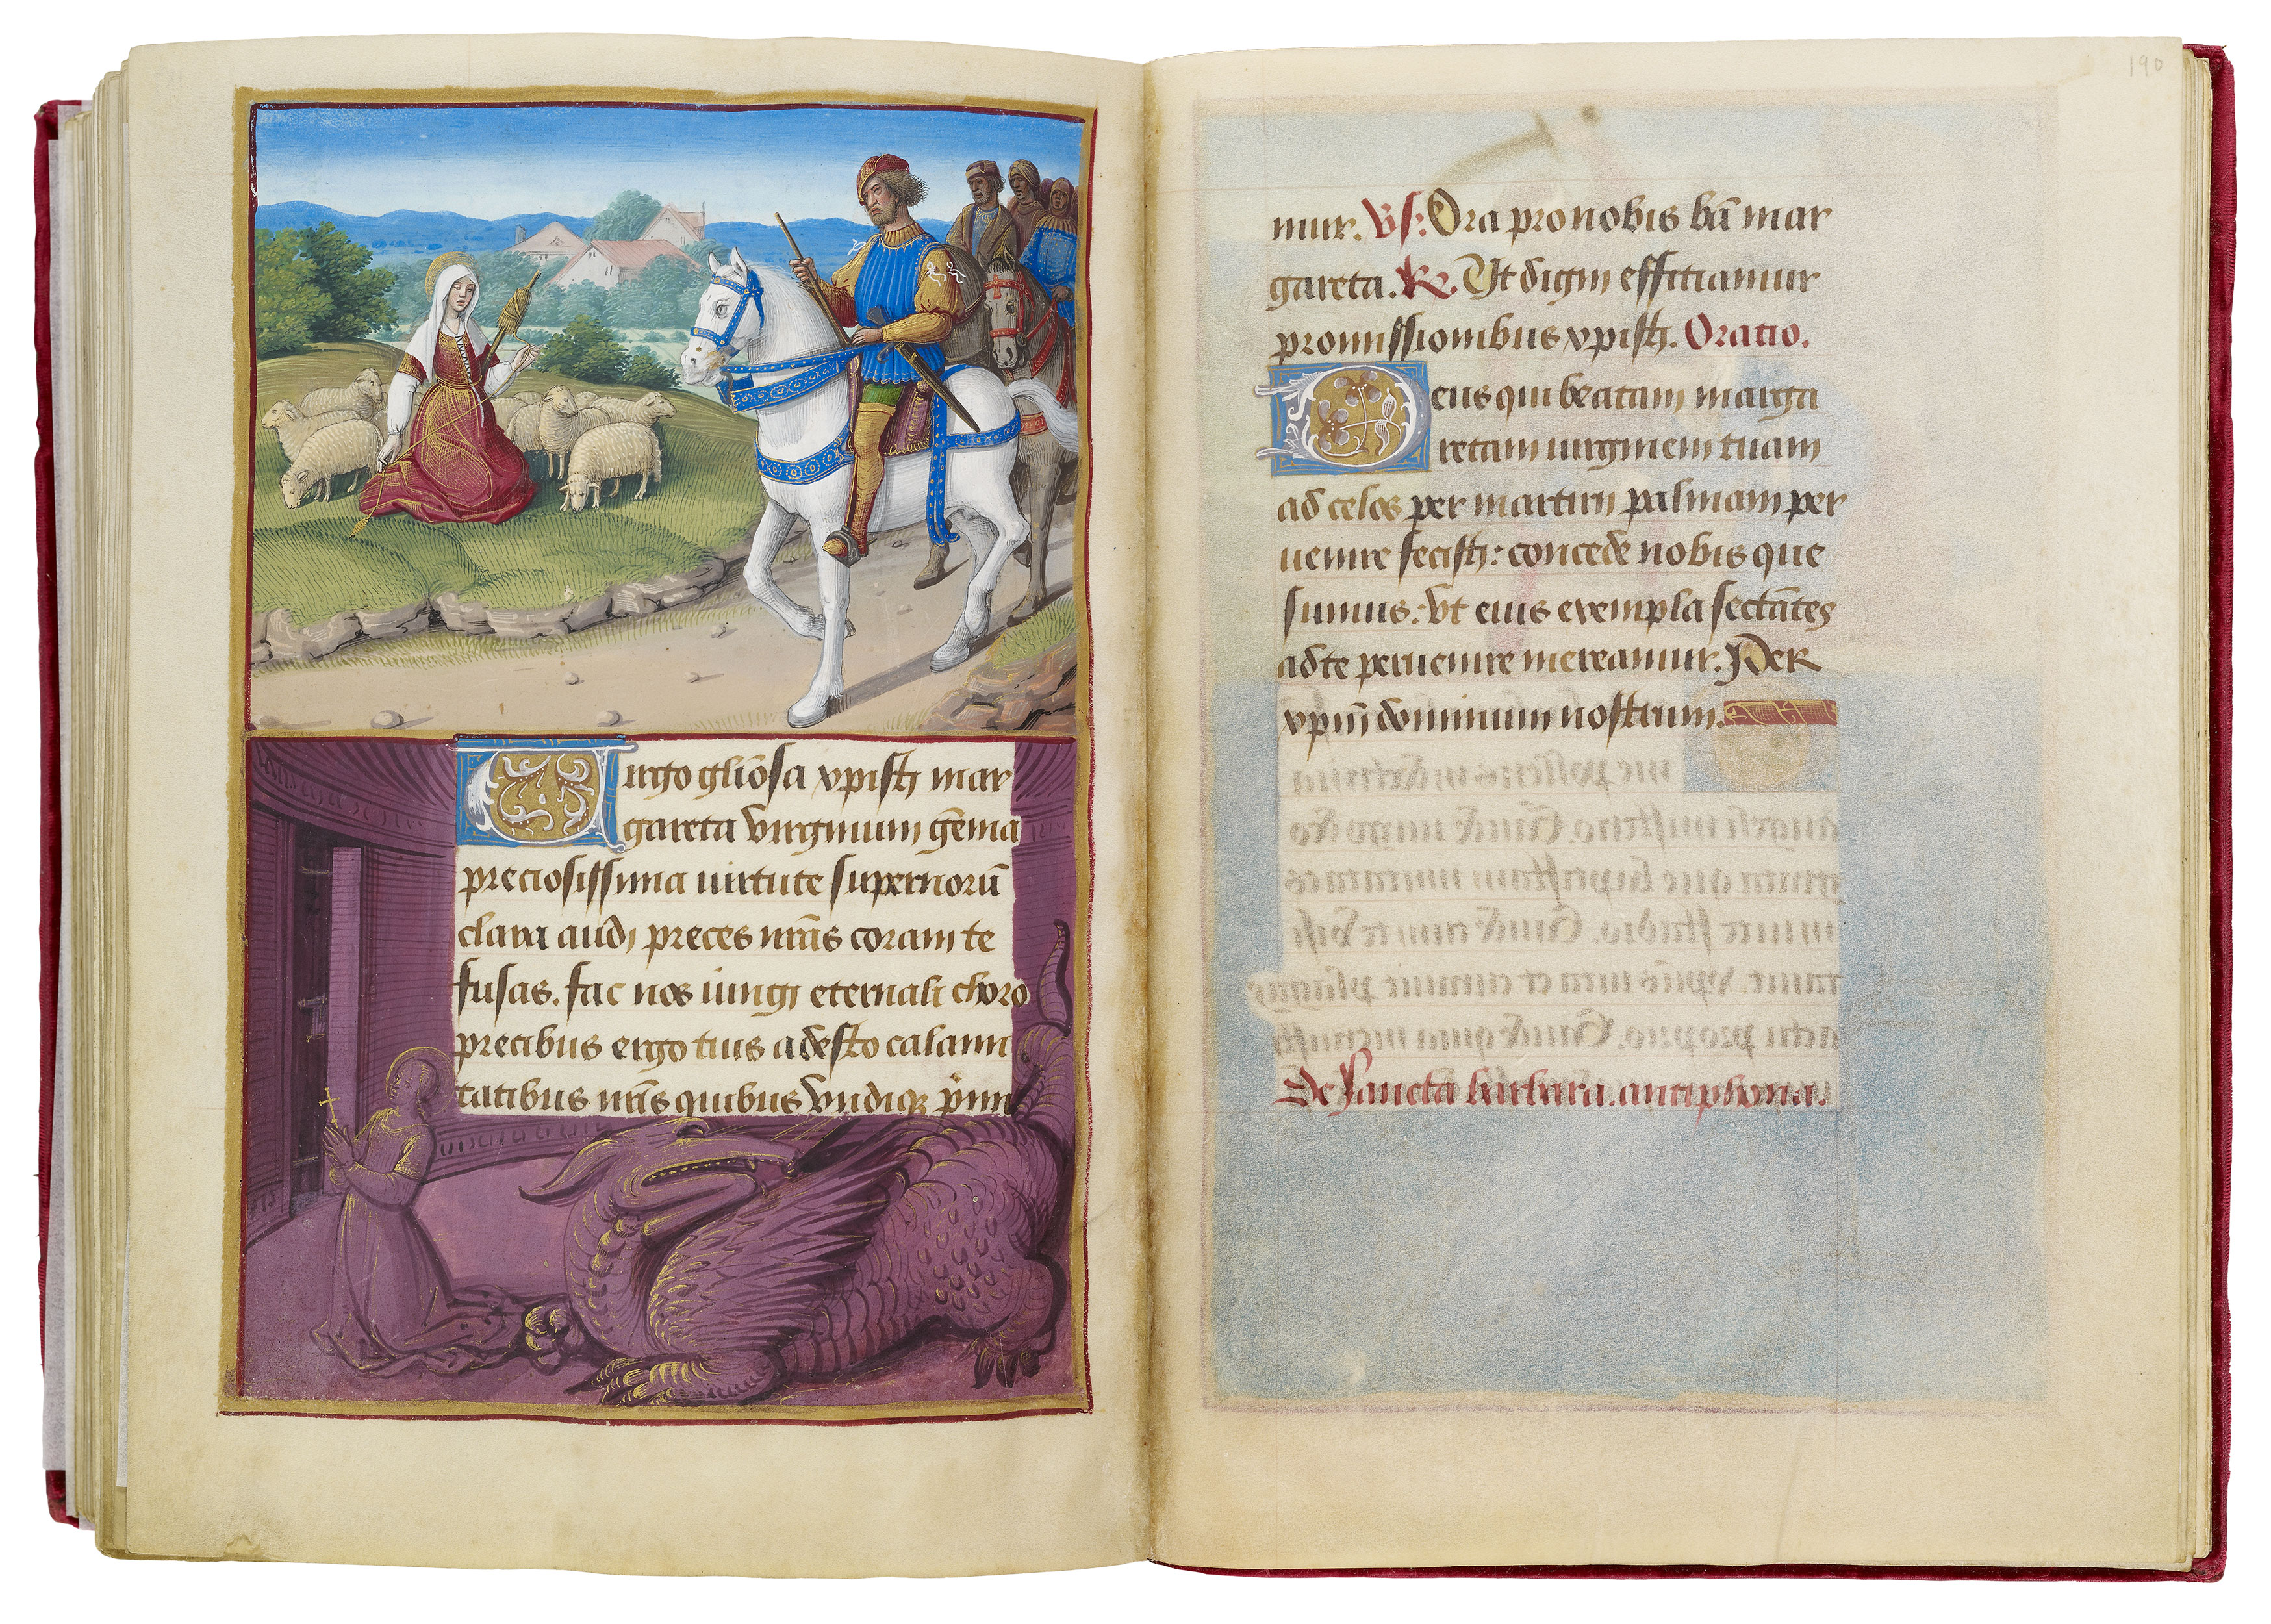 Virgo gliosa xpisti mar
gareta virginum gema
preciosissima virtute supernorū
clara audi preces nr̄as coram te
fusas. fac nos iungi eternali choro
precibus ergo tuis adesto calami
tatibus nr̄is quibus vndiqꝫ p̄mi
190
mur. Vs: Ora pro nobis bā mar
gareta. R. Ut digni efficiamur
promissionibus xpisti. Oratio.
Deus qui beatam marga
retam uirginem tuam
ad celos per martirii palmam per
uenire fecisti: concede nobis que
sumus: vt eius exempla sectātes
ad te peruenire mereamur. Per
xpm̄ dominum nostrum.
De sancta barbara. antiphona.